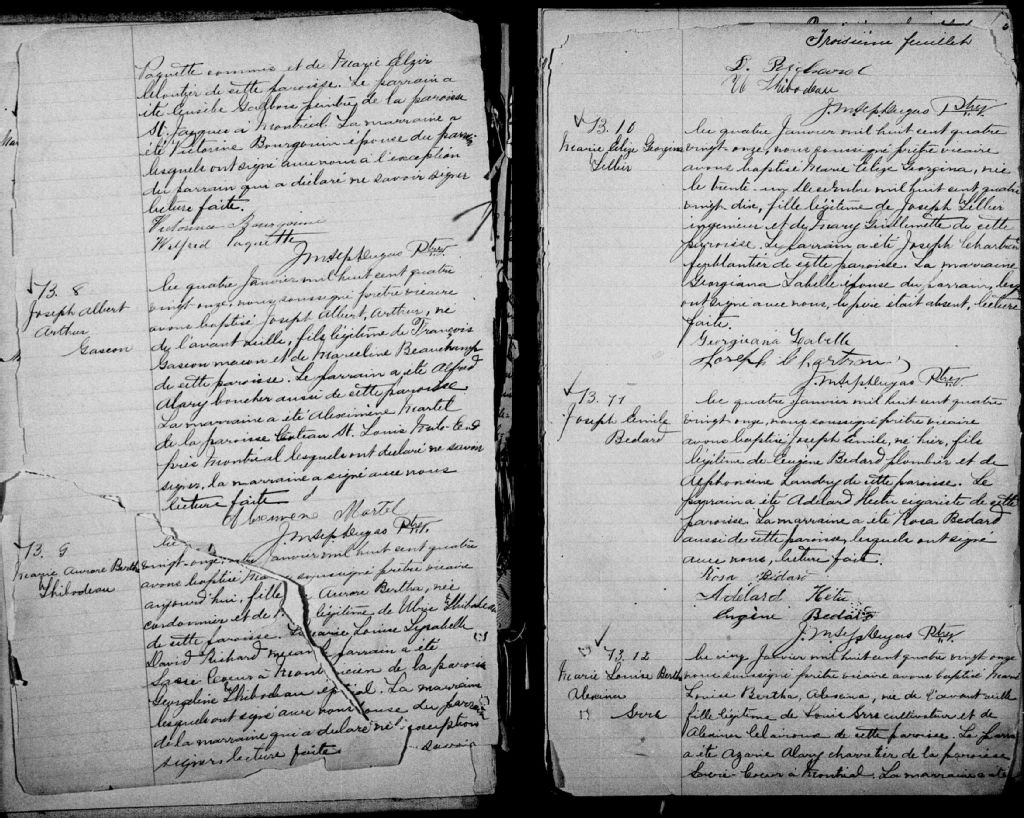 Paquette commis et de Marie Elzir
Cloutier de cette paroisse. Le parrain a
été Eusèbe peintre de la paroisse
St. Jacques à Montréal. La marraine a
été Victorine Bourgouin épouse du parrain
lesquels ont signé avec nous à l'exception
du parrain qui a déclaré ne savoir signer
lecture faite.
Victorine Bourgouin
Wilfred Paquette
J. M. Seph Dugas Ptre
B. 8
Joseph Albert
Arthur
Gascon
Le quatre Janvier mil huit cent quatre
vingt-onze, nous soussigné prêtre vicaire
avons baptisé Joseph Albert, Arthur, né
de l'avant veille, fils légitime de François
Gascon macon et de Marceline Beauchamp
de cette paroisse. Le parrain a été Alfred
Alary boucher aussi de cette paroisse
La marraine a été Aleximène Martel
de la paroisse Coteau St. Louis Mile-End
près Montréal lesquels ont déclaré ne savoir
signer, la marraine a signé avec nous
lecture faite
Martel
J. M. Seph Dugas Ptre
B. 9
Marie Aurore Bertha
Thibodeau
Le
vingt-onze, nous Janvier mil huit cent quatre
avons baptisé Marie soussigné prêtre vicaire
aujourd'hui, fille Aurore Bertha, née
cordonnier et de légitime de Ulric Thibodeau
de cette paroisse. Marie Louise
David Richard parrain a été
Sacré Coeur à Montréal de la paroisse
Georgeline Thibodeau La marraine
lesquels ont signé avec nous épouse du parrain
de la marraine qui a déclaré ne l'exception
signer lecture faite savoir
Troisième feuillet
D. Richard
U Thibodeau
J. M. Seph Dugas Ptre
B. 10
Marie Élize Georgina
Tellier
Le quatre Janvier mil huit cent quatre
vingt-onze, nous soussigné prêtre vicaire
avons baptisé Marie Élize Georgina, née
le trente-un Décembre mil huit cent quatre
vingt dix, fille légitime de Joseph Tellier
ingénieur et de Mary Guillemette de cette
paroisse. Le parrain a été Joseph Chartrain
ferblantier de cette paroisse. La marraine
Georgiana Labelle épouse du parrain, lesquels
ont signé avec nous, le père était absent, lecture
faite.
Georgiana Labelle
Joseph Chartrain
J. M. Seph Dugas Ptre
B. 11
Joseph Emile
Bedard
Le quatre Janvier mil huit cent quatre
vingt-onze, nous soussigné prêtre vicaire
avons baptisé Joseph Emile, né hier, fils
légitime de Eugène Bedard plombier et de
Alphonsine Landry de cette paroisse. Le
parrain a été Adelard Hetu cigariste de cette
paroisse. La marraine a été Rosa Bedard
aussi de cette paroisse, lesquels ont signé
avec nous, lecture faite.
Rosa Bédard
Adélard Hetu
Eugène Bedard
J. M. Seph Dugas Ptre
B. 12
Marie Louise Bertha
Alexina
Le cinq Janvier mil huit cent quatre vingt onze
nous soussigné prêtre vicaire avons baptisé Marie
Louise Bertha, Alexina, née de l'avant veille
fille légitime de Louis cultivateur et de
Alexina Clairoux de cette paroisse. Le parrain
a été Azarie Alary charretier de la paroisse
Sacré-Coeur à Montréal. La marraine a été